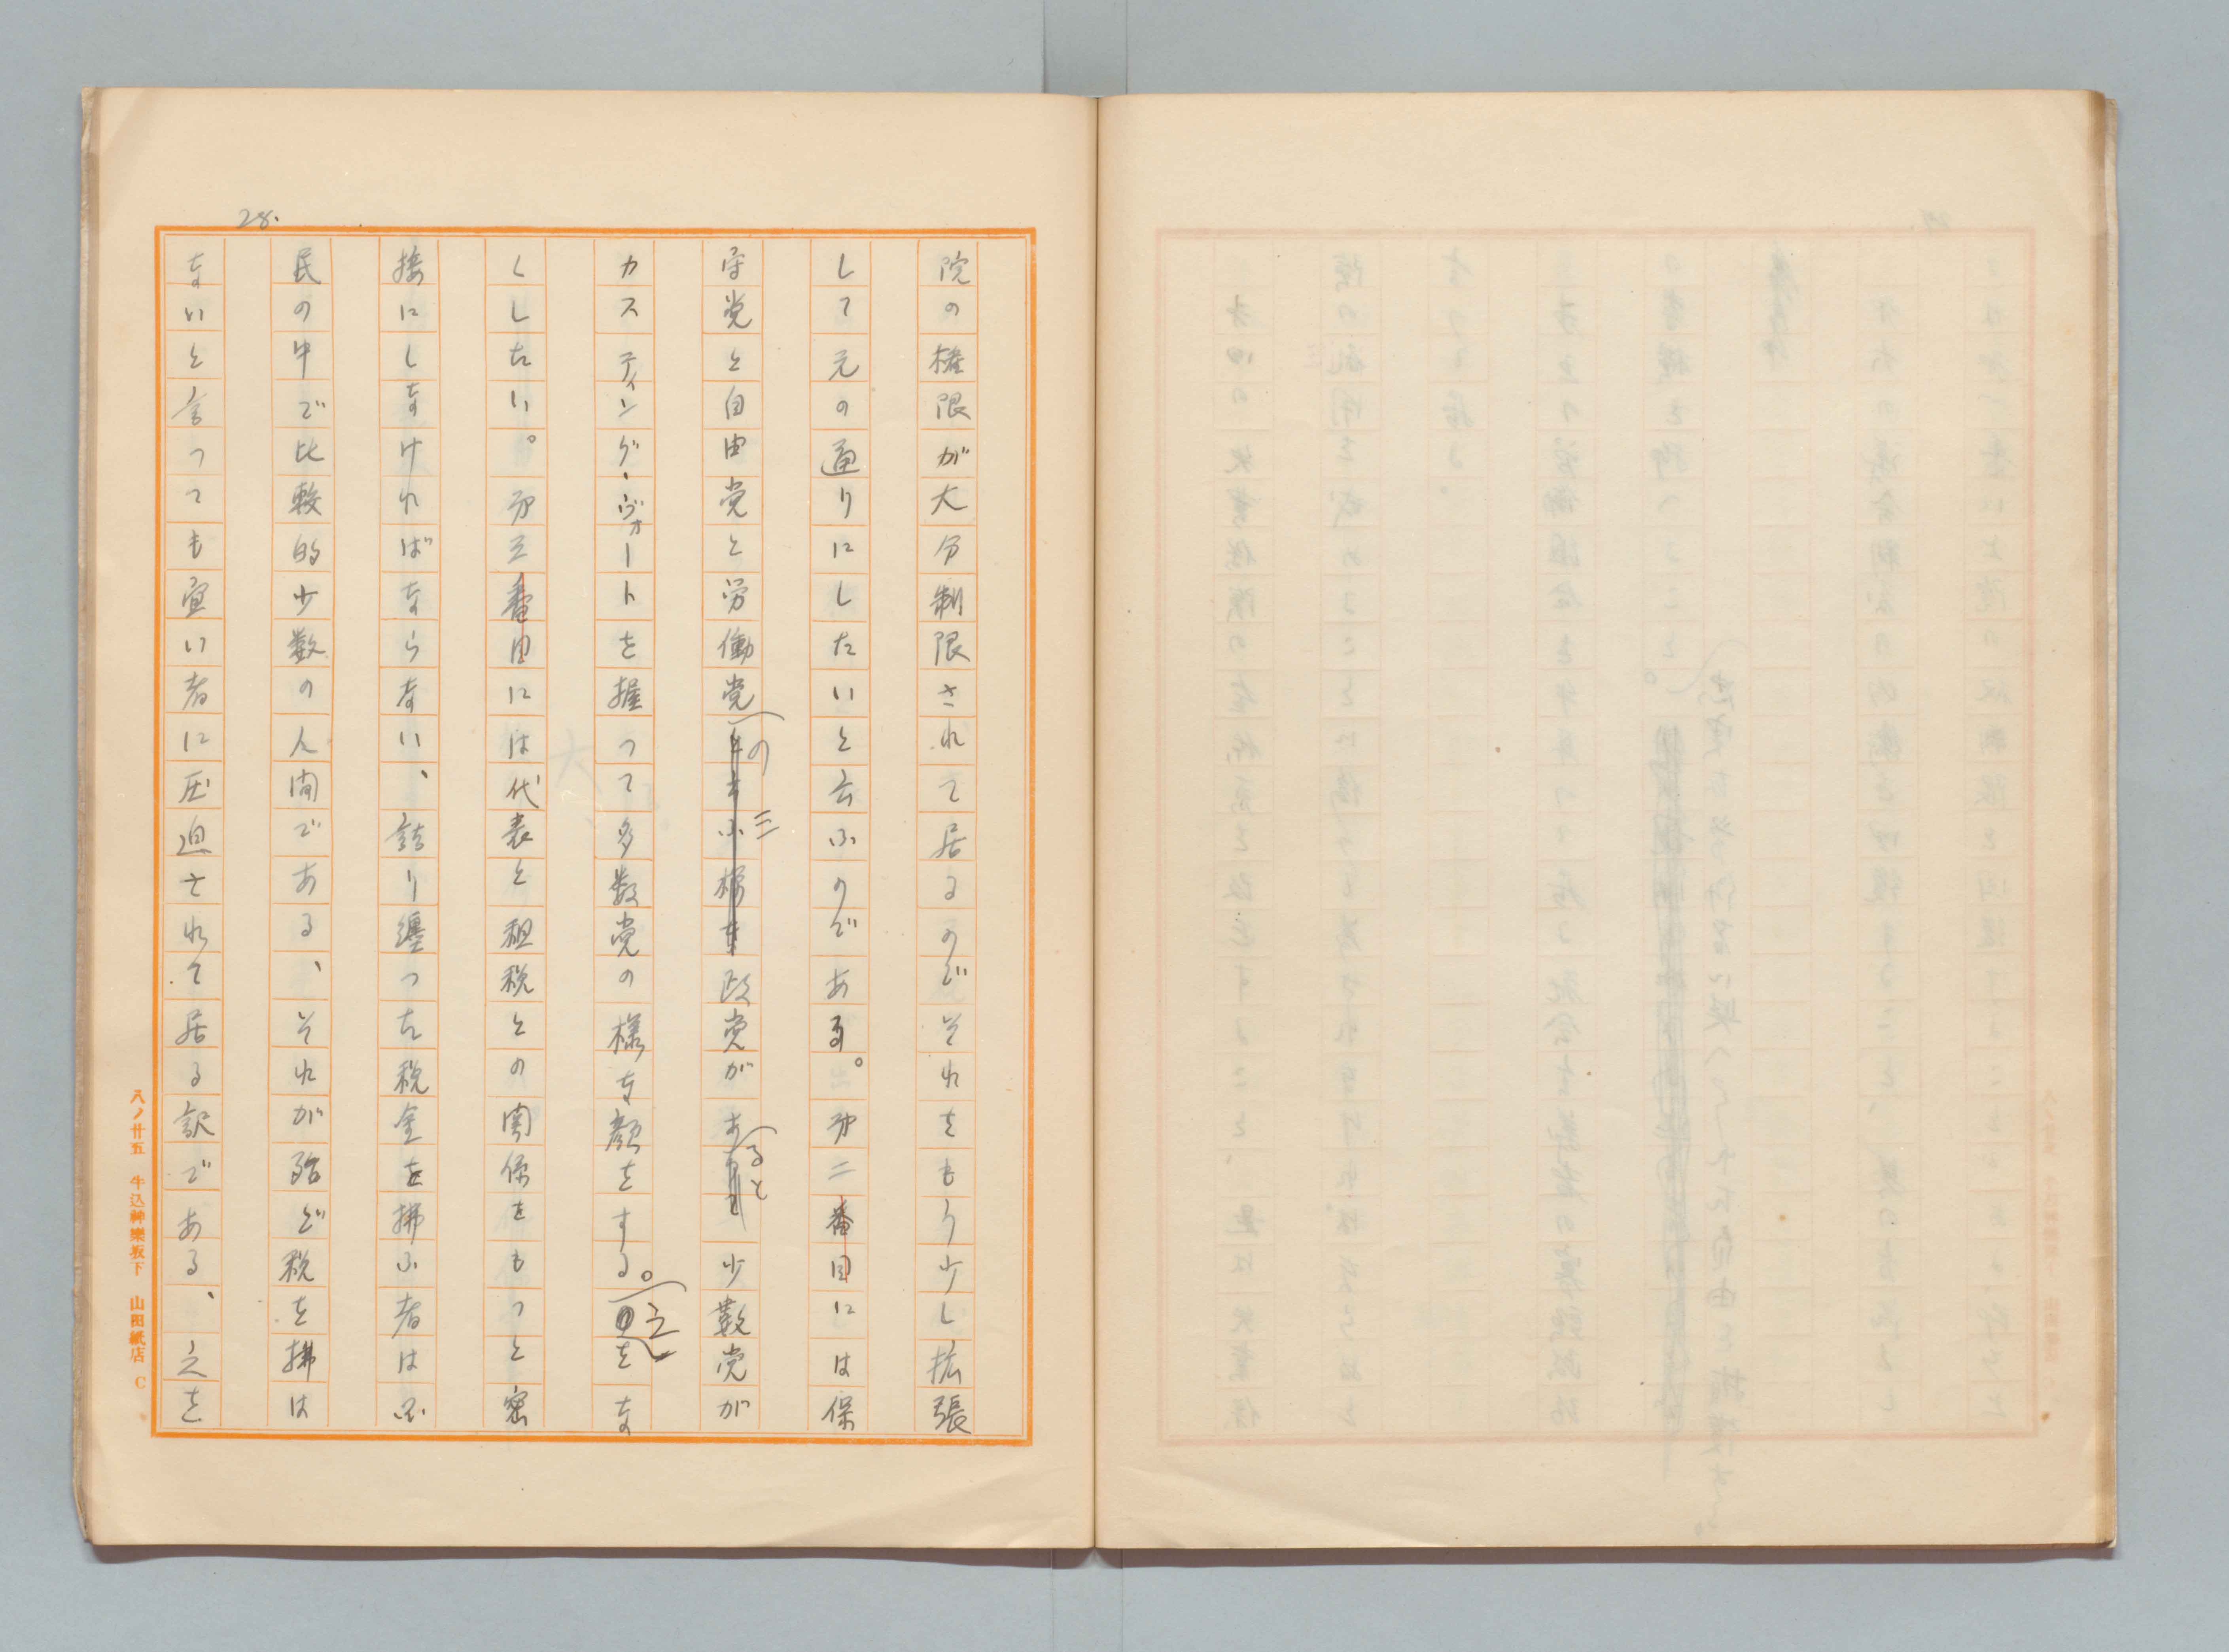 28.
院の権限が大分制限されて居るのでそれをもう少し拡張
して元の通りにしたいと云ふのである。第二番目には保
守党と自由党と労働党の三政党があると少数党が
カスティング・ヴォートを握つて多数党の様な顔をする。之をな
くしたい。第三番目には代表と租税との関係をもつと密
接にしなければならない、詰り纏つた税金を拂ふ者は国
民の中で比較的少数の人間である、それが殆ど税を拂は
ないと言つても宜い者に圧迫されて居る訳である、之を
八ノ廿五 牛込神樂坂下 山田紙店 C